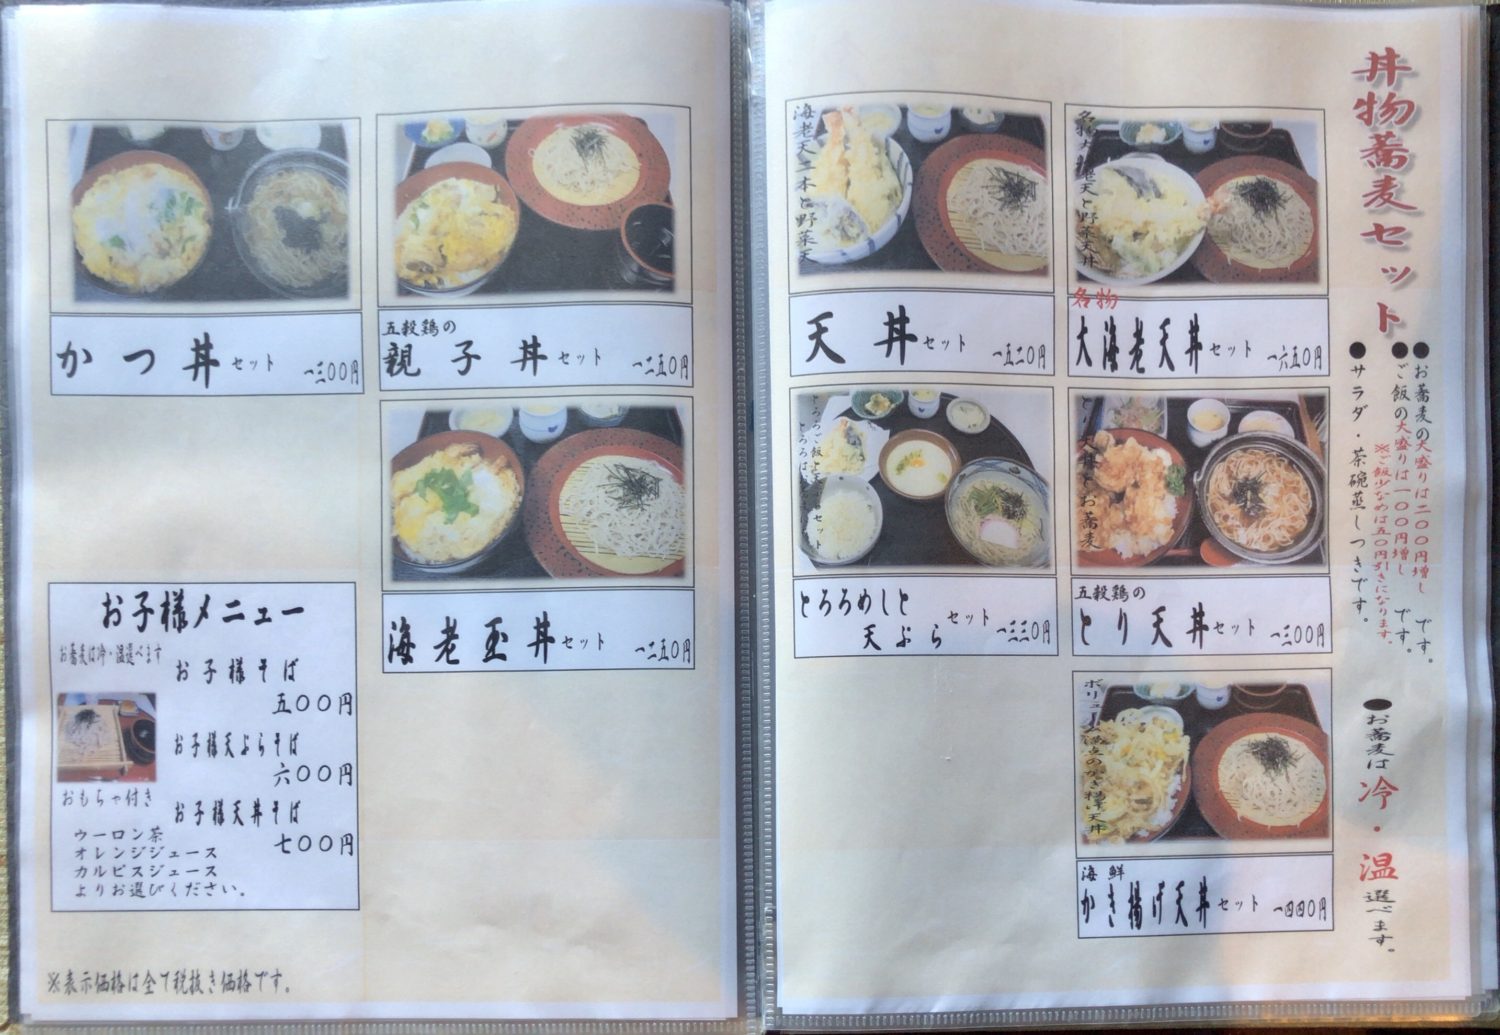 丼物蕎麦セット
●お蕎麦の大盛りは二〇〇円増しです。
●ご飯の大盛りは一〇〇円増しです。
※ご飯少なめは五〇円引きになります。
●サラダ・茶碗蒸しつきです。
●お蕎麦は冷・温選べます。
海老天と野菜天丼
名物
大海老天丼セット 一六五〇円
海老天二本と野菜天
天丼セット 一五二〇円
お蕎麦
五穀鶏の
とり天丼セット 一三〇〇円
とろろご飯と
セット
とろろめしと
天ぷら
セット 一三三〇円
ボリューム満点のかき揚げ天丼
海鮮
かき揚げ天丼セット 一四四〇円
五穀鶏の
親子丼セット 一二五〇円
かつ丼セット 一三〇〇円
海老玉丼セット 一二五〇円
お子様メニュー
お蕎麦は冷・温選べます
お子様そば
五〇〇円
お子様天ぷらそば
六〇〇円
お子様天丼そば
七〇〇円
おもちゃ付き
ウーロン茶
オレンジジュース
カルピスジュース
よりお選びください。
※表示価格は全て税抜き価格です。